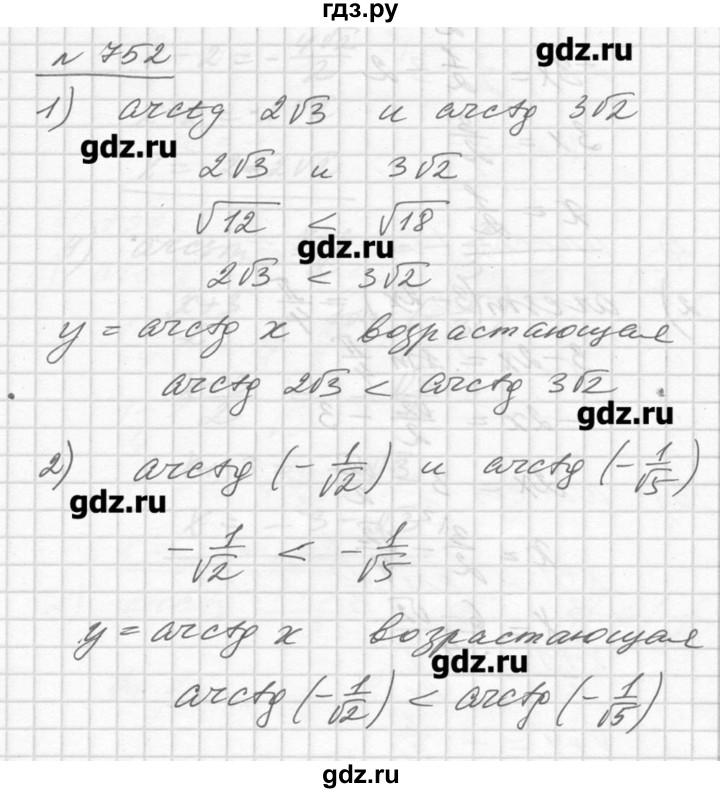 гдз.ру
№ 752
gdz.ru
1) arctg 2√3 и arctg 3√2
gdz.ru
2√3 и 3√2
√12 < √18
gdz.ru
2√3 < 3√2
y = arctg x возрастающая
arctg 2√3 < arctg 3√2
gdz.ru
2) arctg (-1/√2) и arctg (-1/√5)
gdz.ru
-1/√2 < -1/√5
y = arctg x возрастающая
gdz.ru
arctg (-1/√2) < arctg (-1/√5)
gdz.ru